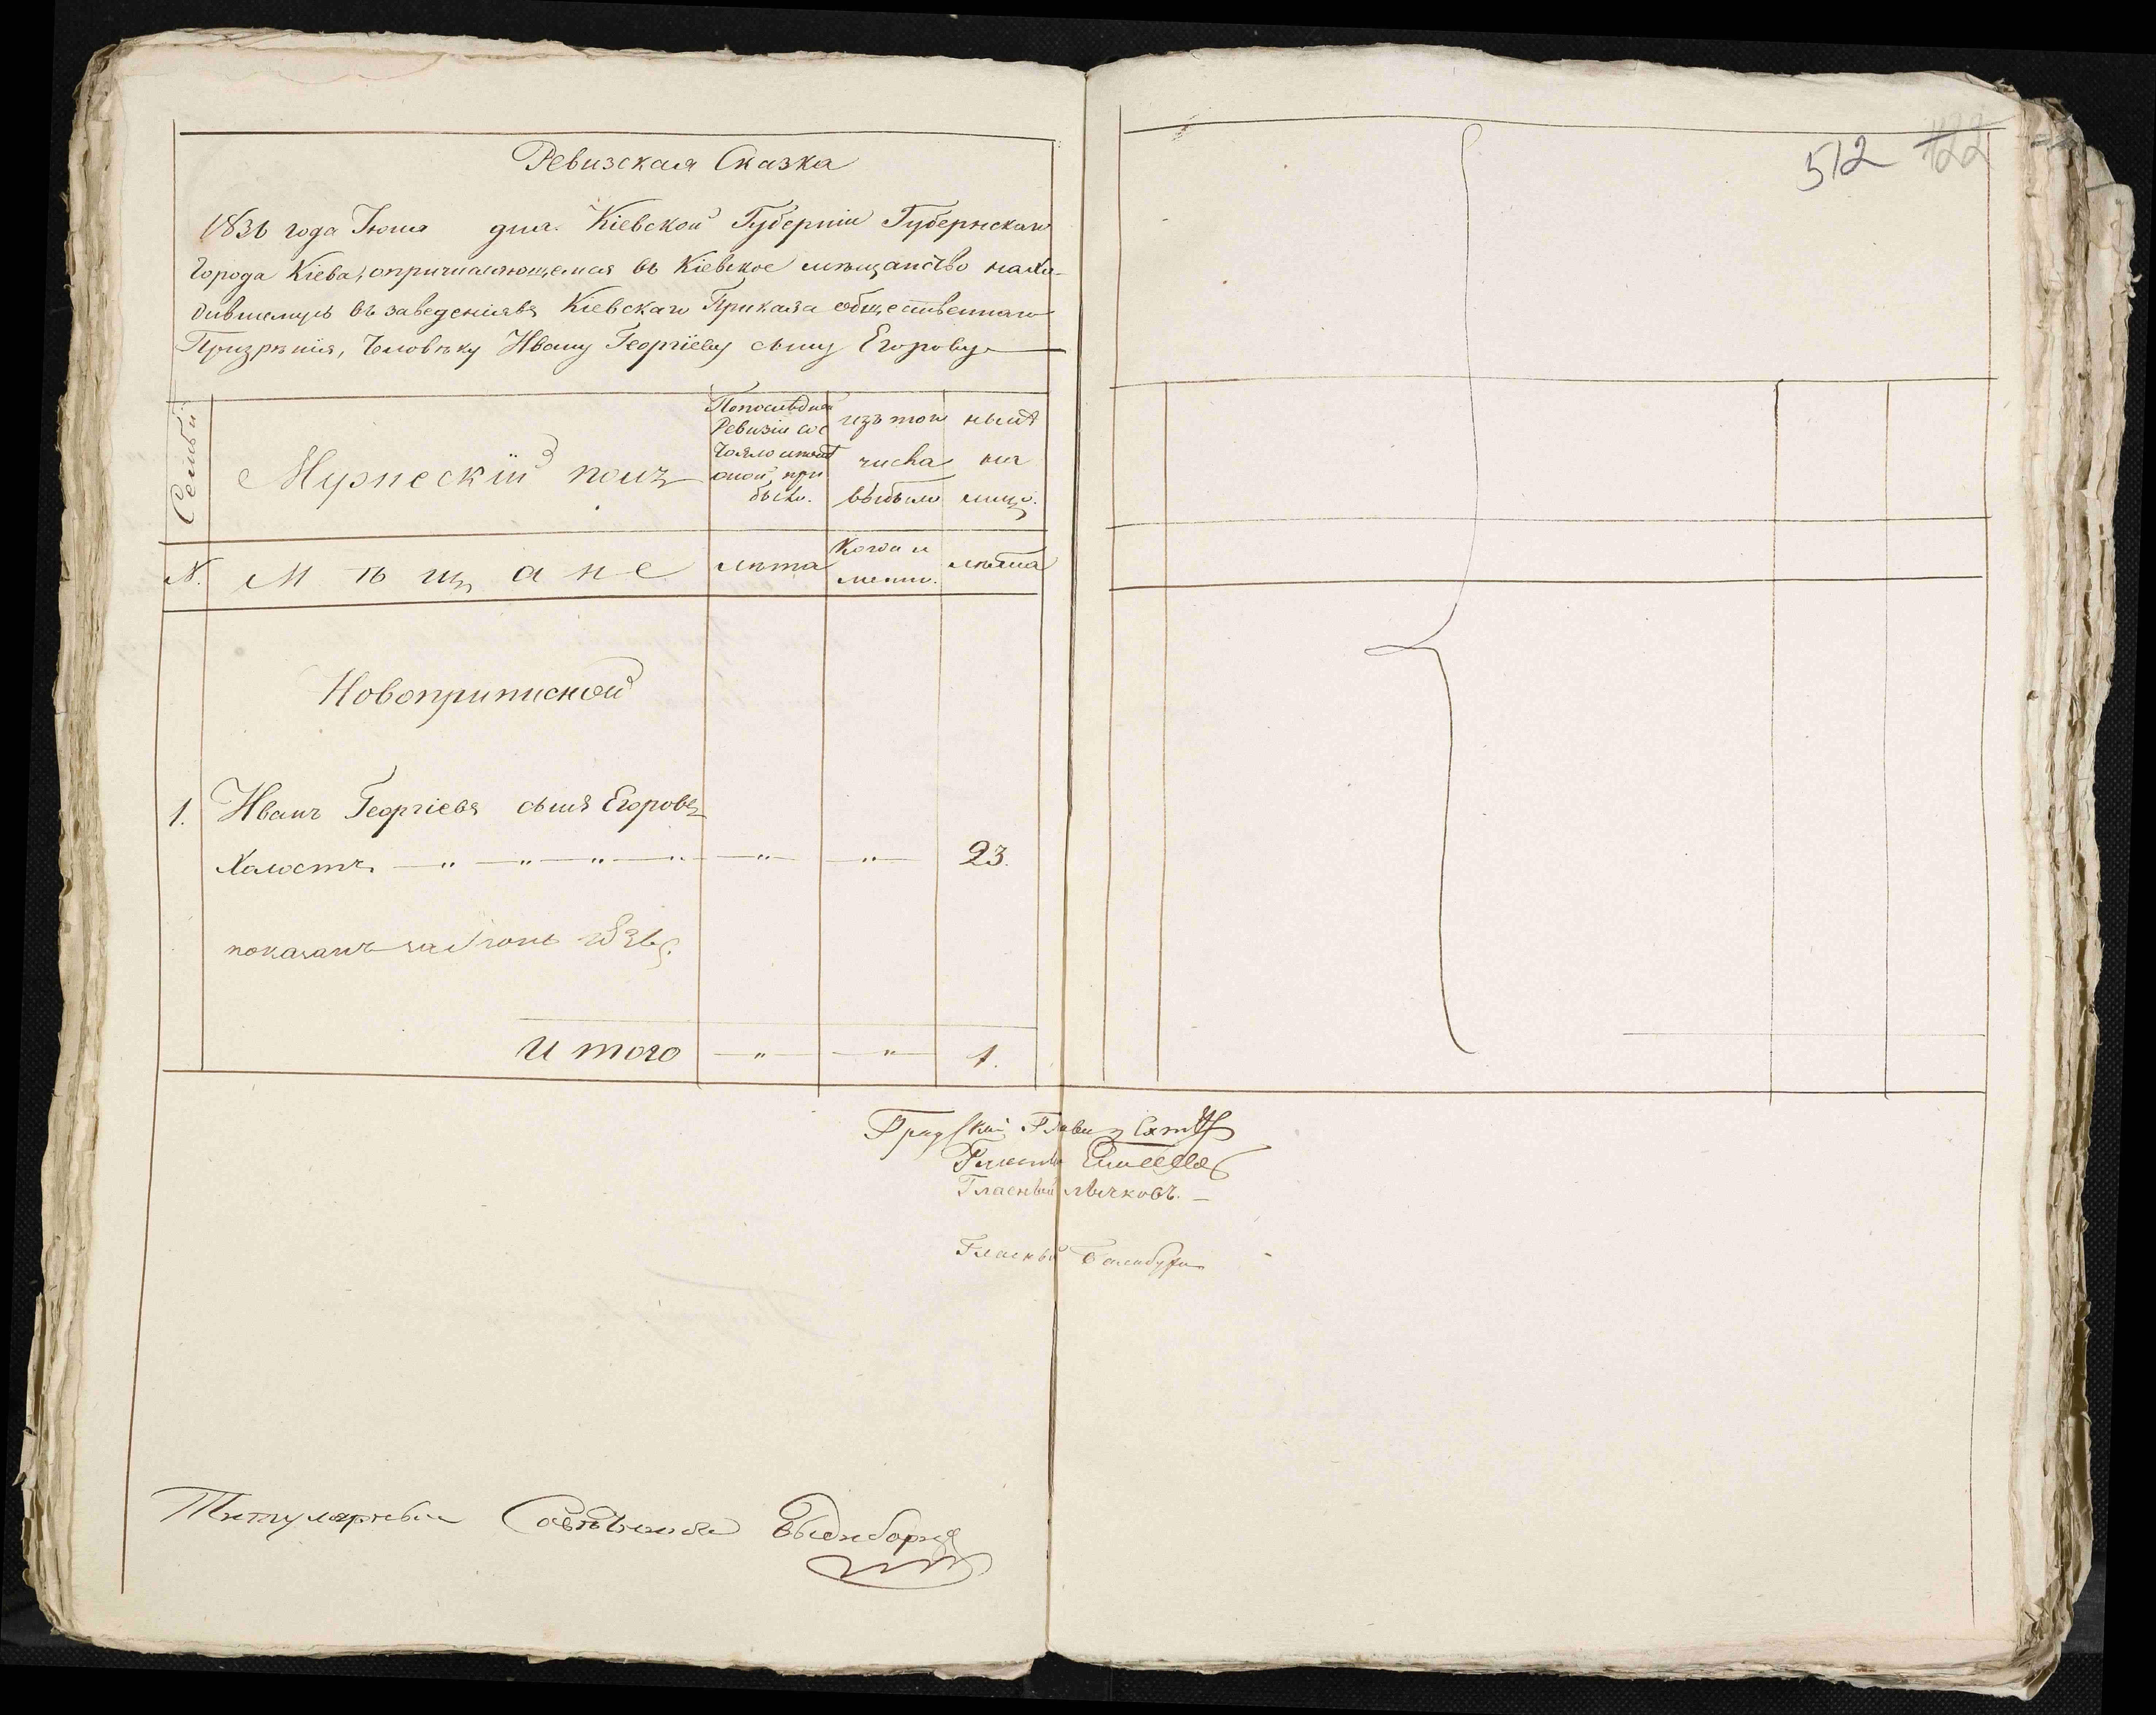 Ревизская Сказка
1836 года Іюня дня. Кіевской Губерніи Губернскаго
города Кіева, опричисляющемся въ Кіевское мѣщанство нахо-
дившемусь въ заведеніяхъ Кіевскаго Приказа общественнаго
Призрѣнія, Человѣку Ивану Георгіеву сыну Егорову
512 122
Семьи
Мужескій полъ
Попослѣдней
Ревизіи сос
тояло и послѣ
оной при
было.
изъ того
числа
выбыло
нынѣ
на
лицо.
N.
Мѣщане
лѣта
Когда и
лѣта
Новоприписной
1. Иванъ Георгіевъ сынъ Егоровъ
Холостъ 23.
показанъ
Итого 1.
Градскій Глава
Гласный Елисеевъ
Гласный Лычковъ.
Гласный Балабуха
Титулярный Совѣтникъ